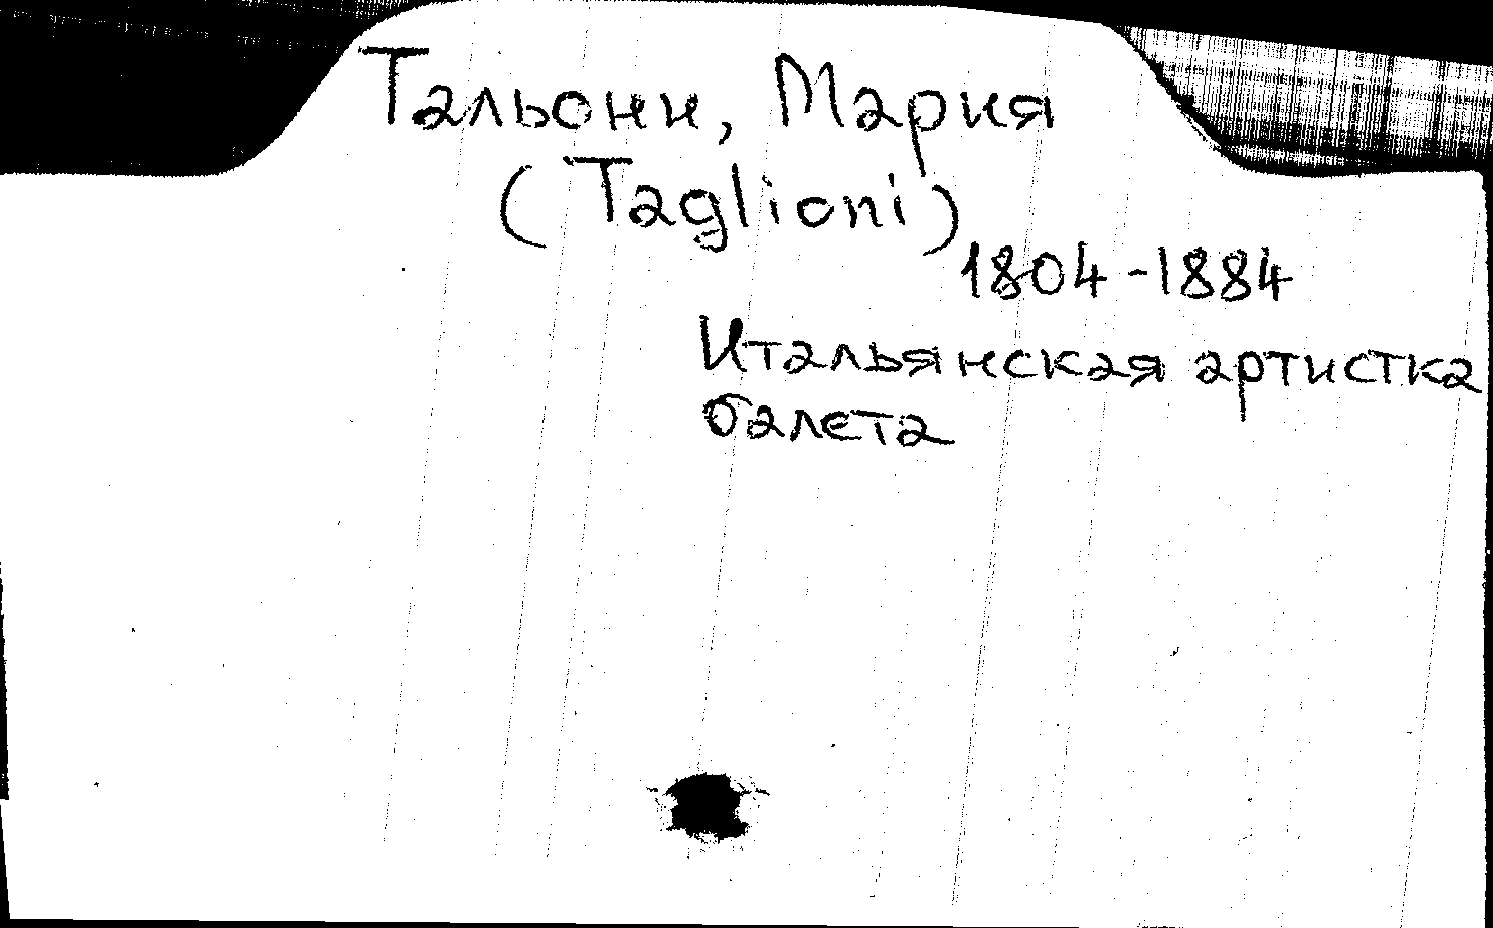 Тальони, Мария
(Taglioni)
1804-1884
Итальянская артистка
балета